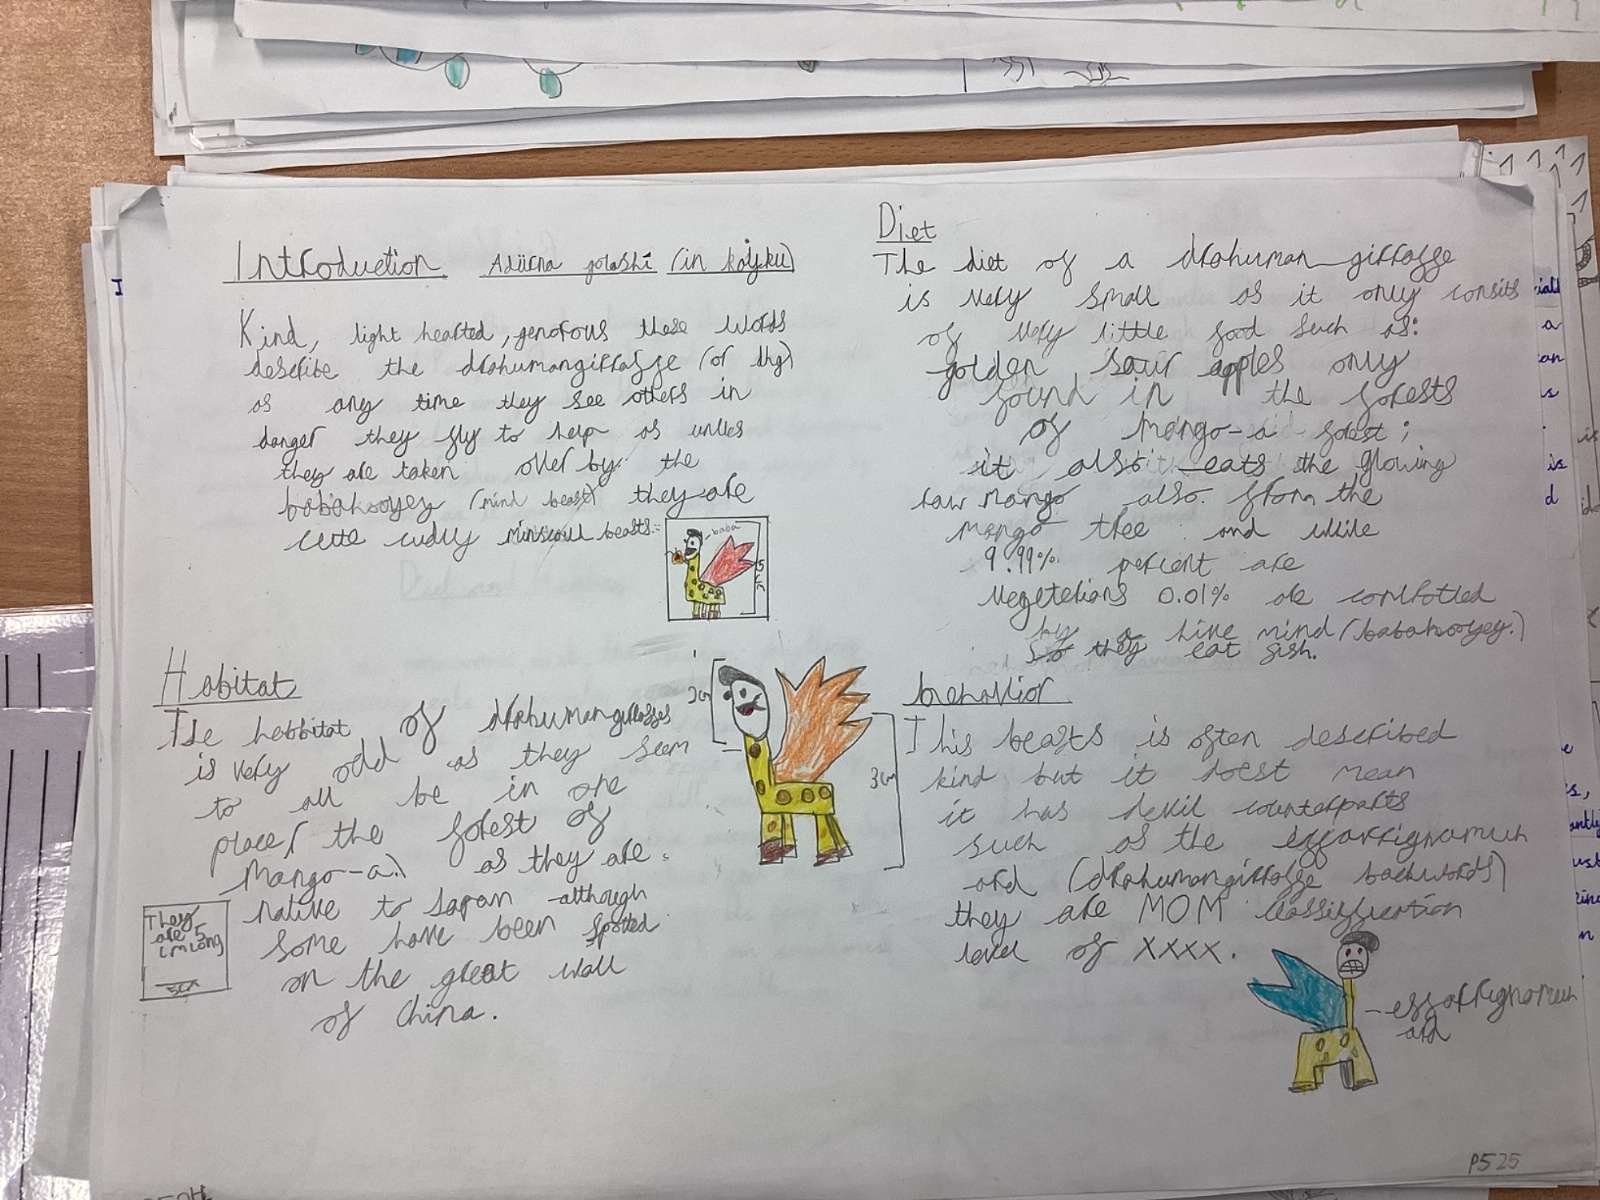 Introduction Adürna golashi (in kaijku)
Kind, light hearted, generous these words
describe the drahumangiraffge (or dhg)
as any time they see others in
danger they fly to help as unlles
they are taken over by the
babahooyey (mind beast) they are
cute cudly beasts.
baba
5cm
Habitat
The hebbitat of drahumangiraffges
is very odd as they seem
to all be in one
place (the forest of
Mango-a.) as they are
native to Japan although
some have been spotted
on the great wall
of China.
They
are 5
cm long
3cm
3cm
Diet
The diet of a drahuman giraffge
is very small as it only consits
of very little food such as:
golden sour apples only
found in the forests
of Mango-a forest;
it also eats the glowing
raw mango also from the
mango tree and while
99.99% percent are
vegeterians 0.01% are controtled
by a hive mind (babahooyey.)
so they eat fish.
behavior
This beasts is often described
kind but it doest mean
it has devil counterparts
such as the egffarrignamuh
ard (drahumangiraffge backwords)
they are MOM classiffication
level of XXXX.
egffarrignamuh
ard
P525